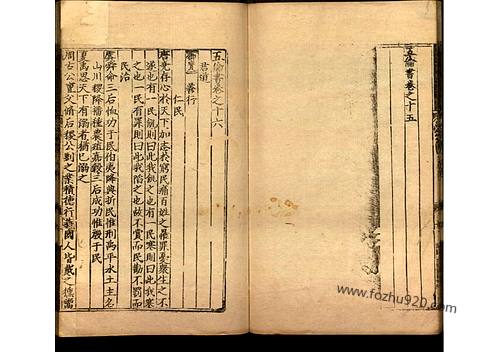 五倫書卷之十五
五倫書卷之十六
君道
善行
仁民
唐堯存心於天下加志於窮民痛百姓之罹罪憂衆生之不
遂也有一民飢則曰此我飢之也有一民寒則曰此我寒
之也一民有罪則曰此我陷之也故不賞而民勸不罰而
民治
虞舜命三后恤功于民伯夷降典折民惟刑禹平水土主名
山川稷降播種農殖嘉穀三后成功惟殷于民
夏禹思天下有溺者猶己溺之
周古公亶父脩后稷公劉之業積德行義國人皆戴之
www.fozhu920.com